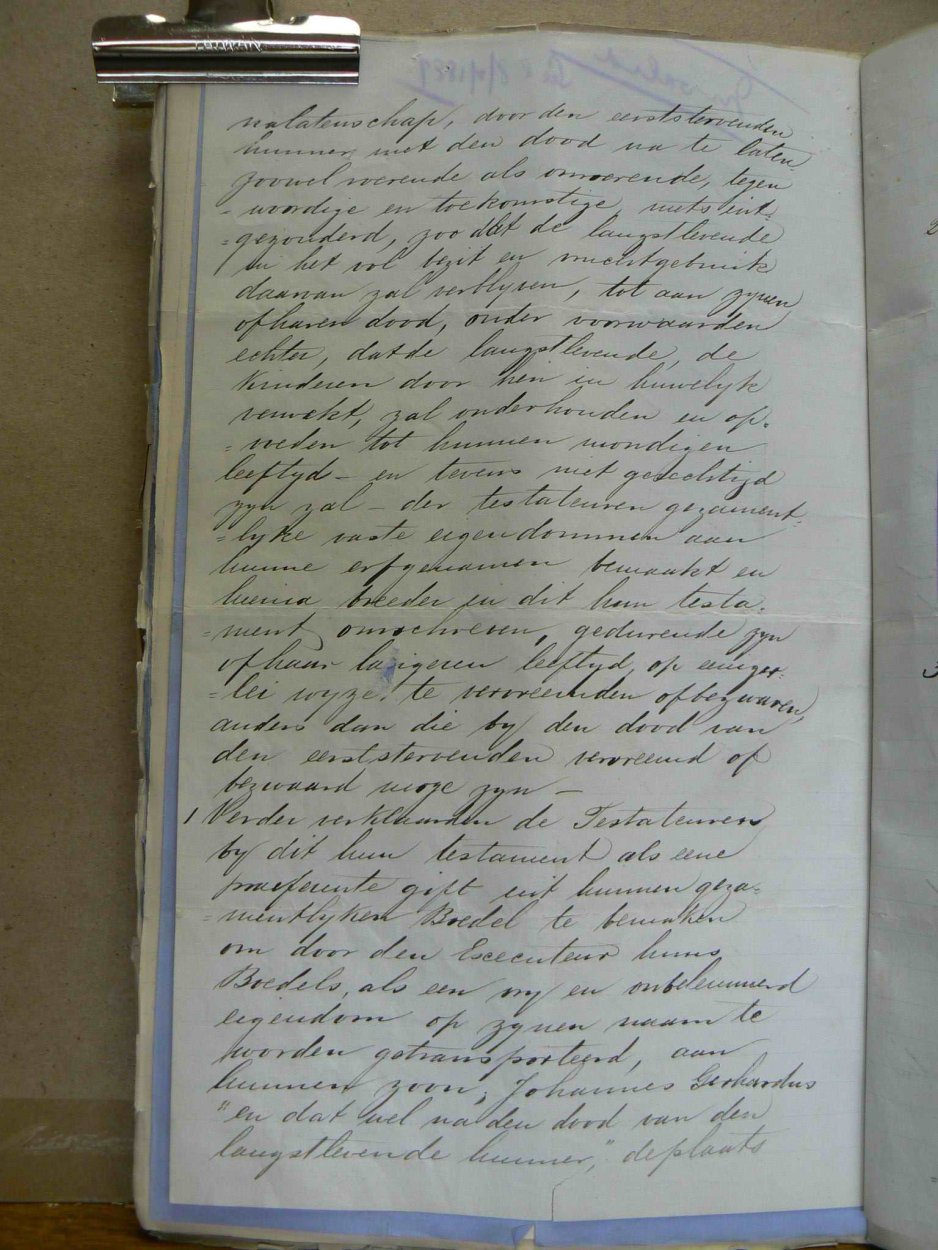 nalatenschap, door den eerststervenden
hunner, met den dood na te laten,
zoowel roerende als onroerende, tegen
-woordige en toekomstige, niets uit-
=gezonderd, zoo dat de langstlevende
in het vol bezit en vruchtgebruik
daarvan zal verblyven, tot aan zynen
of haren dood, onder voorwaarden
echter, dat de langstlevende, de
Kinderen door hen in huwelyk
verwekt, zal onderhouden en op-
=voeden tot hunnen mondigen
leeftyd – en tevens niet gerechtigd
zyn zal – der testateuren gezament-
=lyke vaste eigendommen aan
hunne erfgenamen bemaakt en
hierna breeder in dit hun testa-
=ment omschreven, gedurende zyn
of haar langeren leeftyd, op eeniger-
=lei wyze te vervreemden of bezwaren,
anders dan die by den dood van
den eerststervenden vervreemd of
bezwaard moge zyn –
1 Verder verklaarden de Testateuren
by dit hun testament als eene
praeferente gift uit hunnen geza-
=mentlyken Boedel te bemaken
om door den Executeur huns
Boedels, als een vry en onbelemmerd
eigendom op zynen naam te
worden getransporteerd, aan
hunnen zoon, Johannes Gerhardus
"en dat wel na den dood van den
langstlevende hunner," de plaats